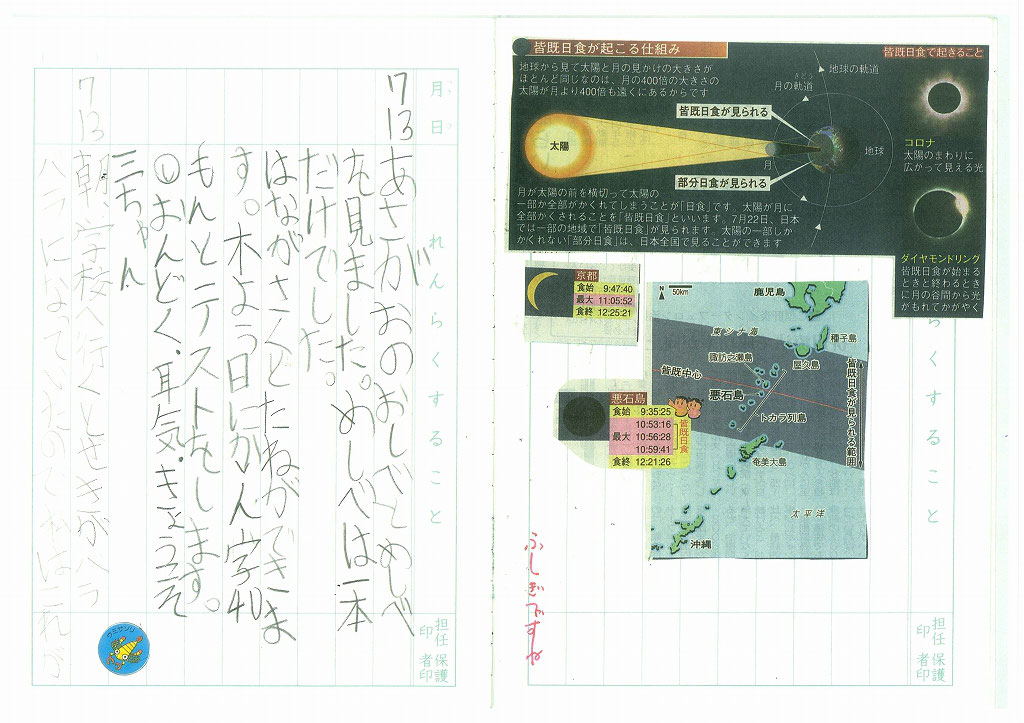 皆既日食が起こる仕組み
地球から見て太陽と月の見かけの大きさが
ほとんど同じなのは、月の400倍の大きさの
太陽が月より400倍も遠くにあるからです
太陽
皆既日食が見られる
部分日食が見られる
月
月の軌道
きどう
地球の軌道
地球
月が太陽の前を横切って太陽の
一部か全部がかくれてしまうことが「日食」です。太陽が月に
全部かくされることを「皆既日食」といいます。7月22日、日本
では一部の地域で「皆既日食」が見られます。太陽の一部しか
かくれない「部分日食」は、日本全国で見ることができます
皆既日食で起きること
コロナ
太陽のまわりに
広がって見える光
ダイヤモンドリング
皆既日食が始まる
ときと終わるとき
に月の谷間から光
がもれてかがやく
らくすること
京都
食始 9:47:40
最大 11:05:52
食終 12:25:21
N
50km
鹿児島
東シナ海
種子島
諏訪之瀬島
屋久島
皆既中心
悪石島
トカラ列島
皆既日食が見られる範囲
奄美大島
太平洋
沖縄
悪石島
食始 9:35:25
10:53:16
最大 10:56:28
10:59:41
皆既日食
食終 12:21:26
ふしぎですね
担任印
保護者印
月日
れんらくすること
7 13
あさがおのおしべとめしべ
を見ました。めしべは一本
だけでした。
はながさくとたねができま
す。木よう日にかん字40
もんとテストをします。
おんどく、耳気、きょうそ
三ちゃん
7 13
朝、学校へ行くとせきがバラ
バラになっていた
担任印
保護者印
ウミサソリ